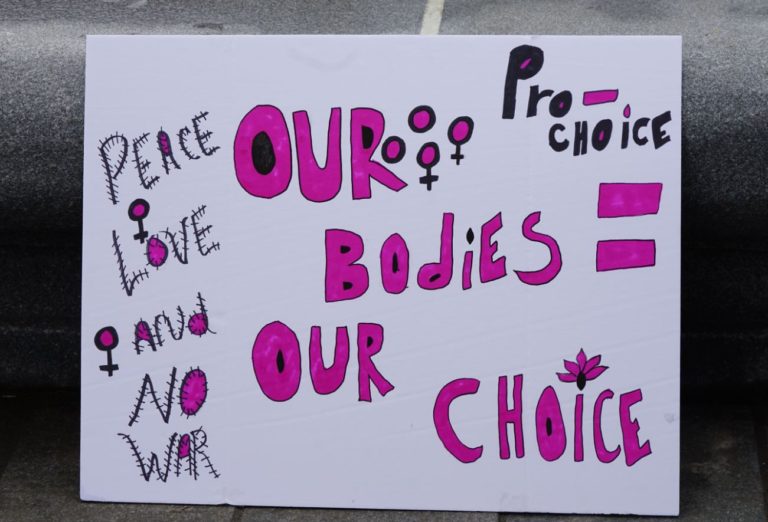 PEACE
LOVE
and
NO
WAR
OUR
BODIES =
OUR
CHOICE
Pro-
CHOICE